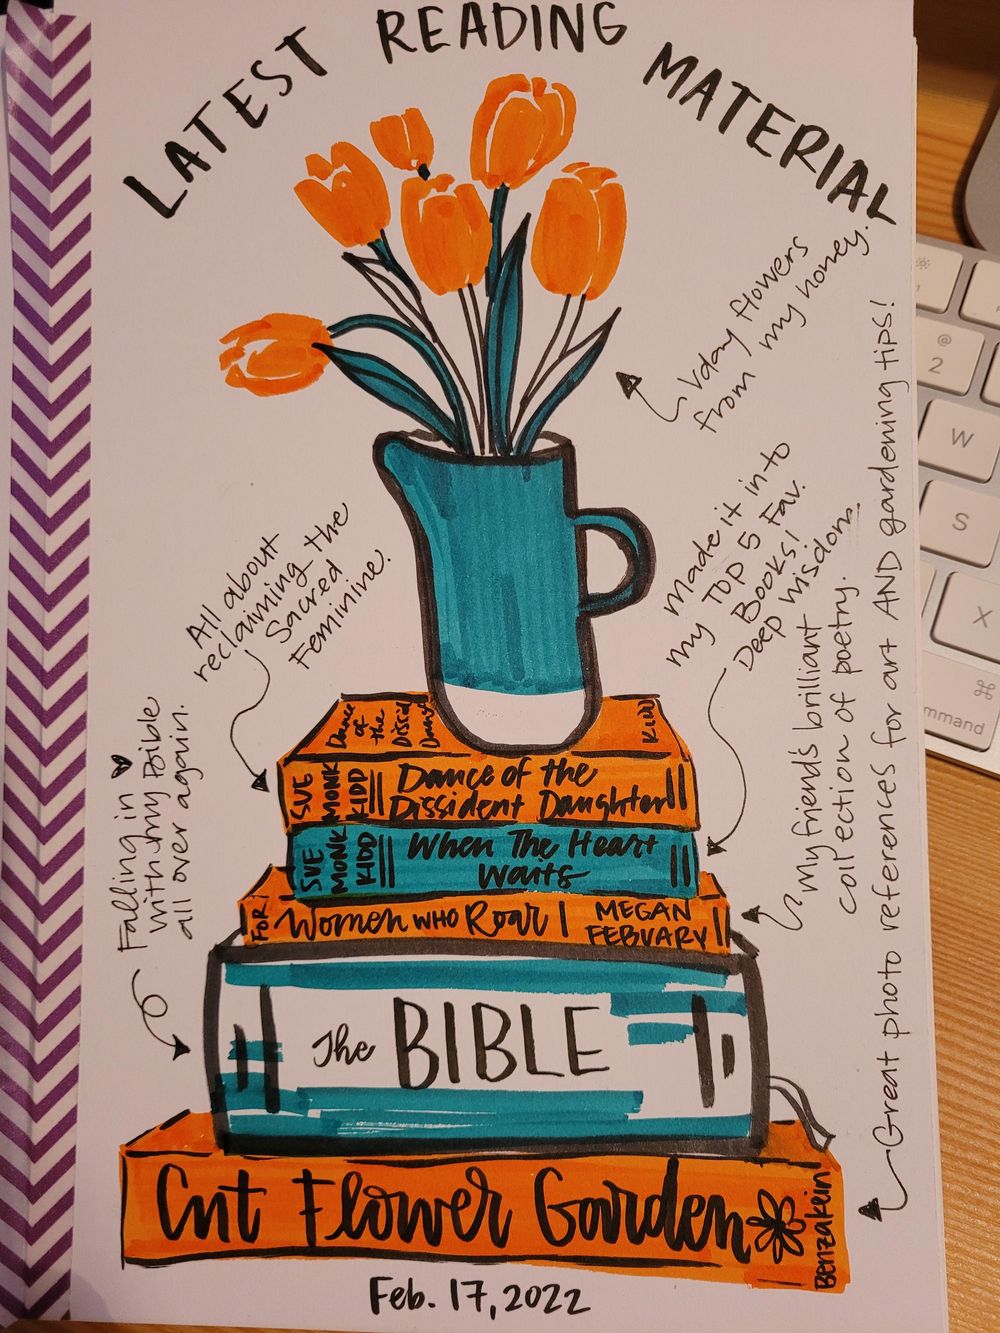 LATEST READING MATERIAL
Vday flowers
from my honey.
All about
reclaiming the
Sacred
Feminine.
Made it into
my TOP 5 Fav.
Books!
Deep wisdom.
My friend's brilliant
collection of poetry.
Great photo references for art AND gardening tips!
Falling in
with my Bible
all over again.
Dance
of
the
Dissid
Daut
KIDD
SUE
MONK
KIDD
Dance of the
Dissident Daughter
SUE
MONK
KIDD
When The Heart
Waits
FOR
Women WHO Roar
MEGAN
FEBUARY
The BIBLE
Cut Flower Garden
Benzakein
Feb. 17, 2022
@
2
W
S
X
⌘
mmand